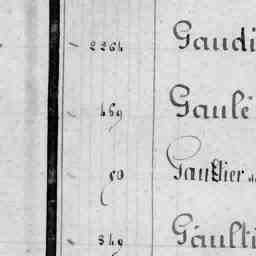 2264 Gaudi
469 Gaulé
50 Gaultier de
349 Gaulti